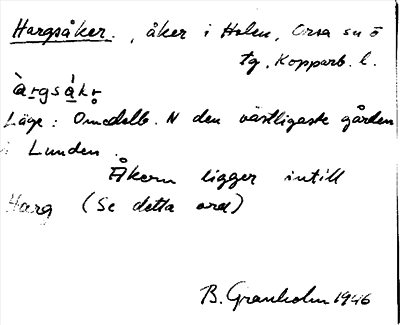 Hargsåker. , åker i Holen, Orsa sn ö
tg, Kopparb. l.
àrgsákr̥
Läge: Omedelb. N den västligaste gården
i Lunden.
Åkern ligger intill
Harg (Se detta ord)
B. Granholm 1946